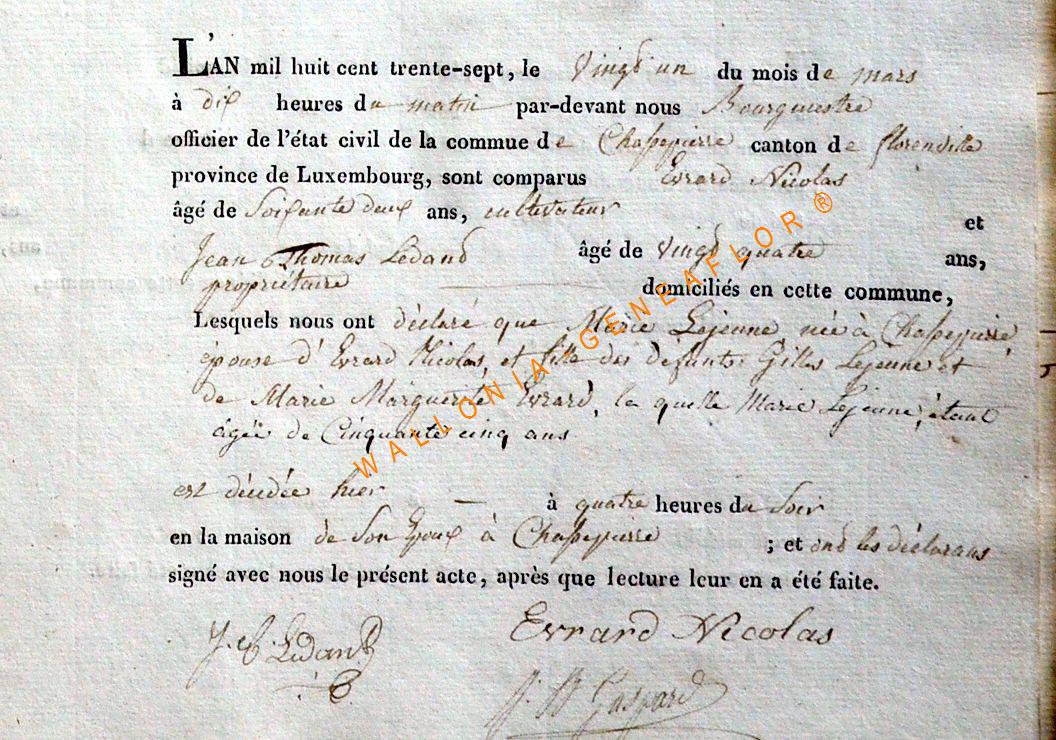 L'AN mil huit cent trente-sept, le Vingt un du mois de mars
à dix heures du matin par-devant nous Bourguestre
officier de l'état civil de la commue de Chassepierre canton de florenville
province de Luxembourg, sont comparus Evrard Nicolas
âgé de Soixante deux ans, cultivateur
et
Jean Thomas Ledand âgé de Vingt quatre ans,
propriétaire — domiciliés en cette commune,
Lesquels nous ont déclaré que Marie Lejeune née à Chassepierre,
épouse d'Evrard Nicolas, et fille des défunts Gilles Lejeune et
de Marie Marguerite Evrard, la quelle Marie Lejeune, étant
âgée de Cinquante cinq ans
est décédée hier — à quatre heures du Soir
en la maison de Son Epoux à Chassepierre ; et ont les déclarans
signé avec nous le présent acte, après que lecture leur en a été faite.
J. T. Ledand
Evrard Nicolas
J. B. Gaspard
WALLONIA GENEAFLOR ®